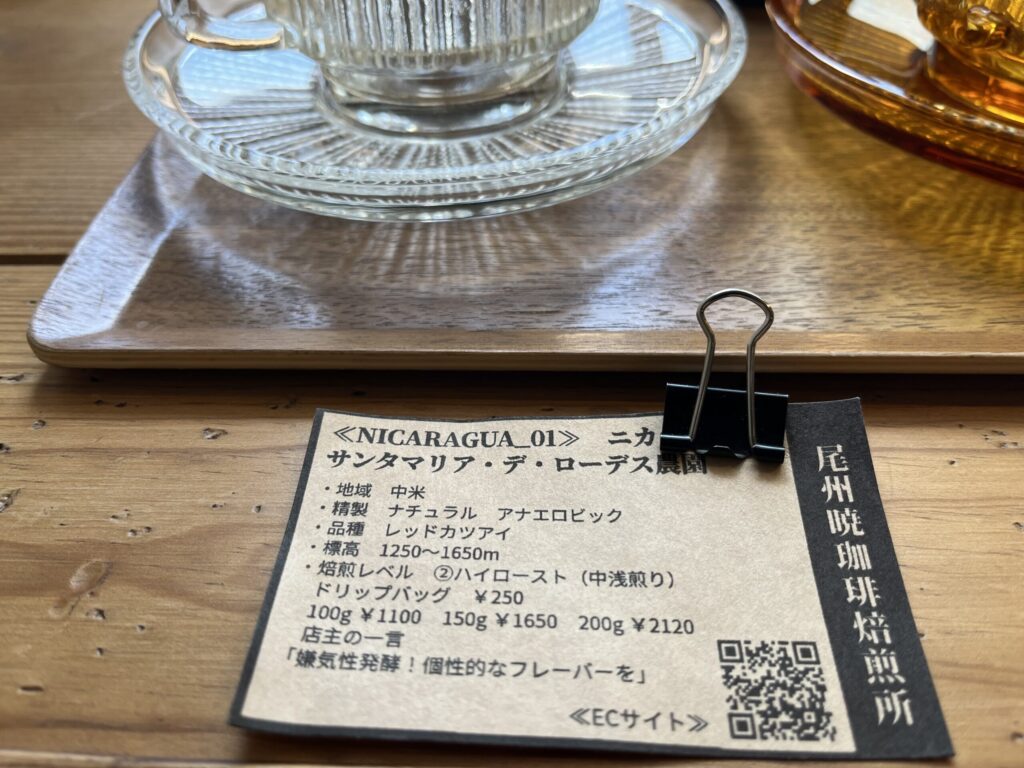 ≪NICARAGUA_01≫ ニカ
サンタマリア・デ・ローデス農園
・地域 中米
・精製 ナチュラル アナエロビック
・品種 レッドカツアイ
・標高 1250～1650m
・焙煎レベル ②ハイロースト（中浅煎り）
ドリップバッグ ￥250
100g ￥1100 150g ￥1650 200g ￥2120
店主の一言
「嫌気性発酵！個性的なフレーバーを」
≪ECサイト≫
尾州暁珈琲焙煎所